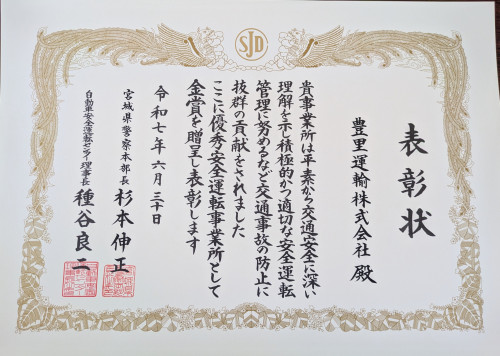 SJD
表彰状
豊里運輸株式会社 殿
貴事業所は平素から交通安全に深い
理解を示し積極的かつ適切な安全運転
管理に努めるなど交通事故の防止に
抜群の貢献をされました
ここに優秀安全運転事業所として
金賞を贈呈し表彰します
令和七年六月三十日
宮城県警察本部長 杉本伸正
自動車安全運転センター理事長 種谷良二